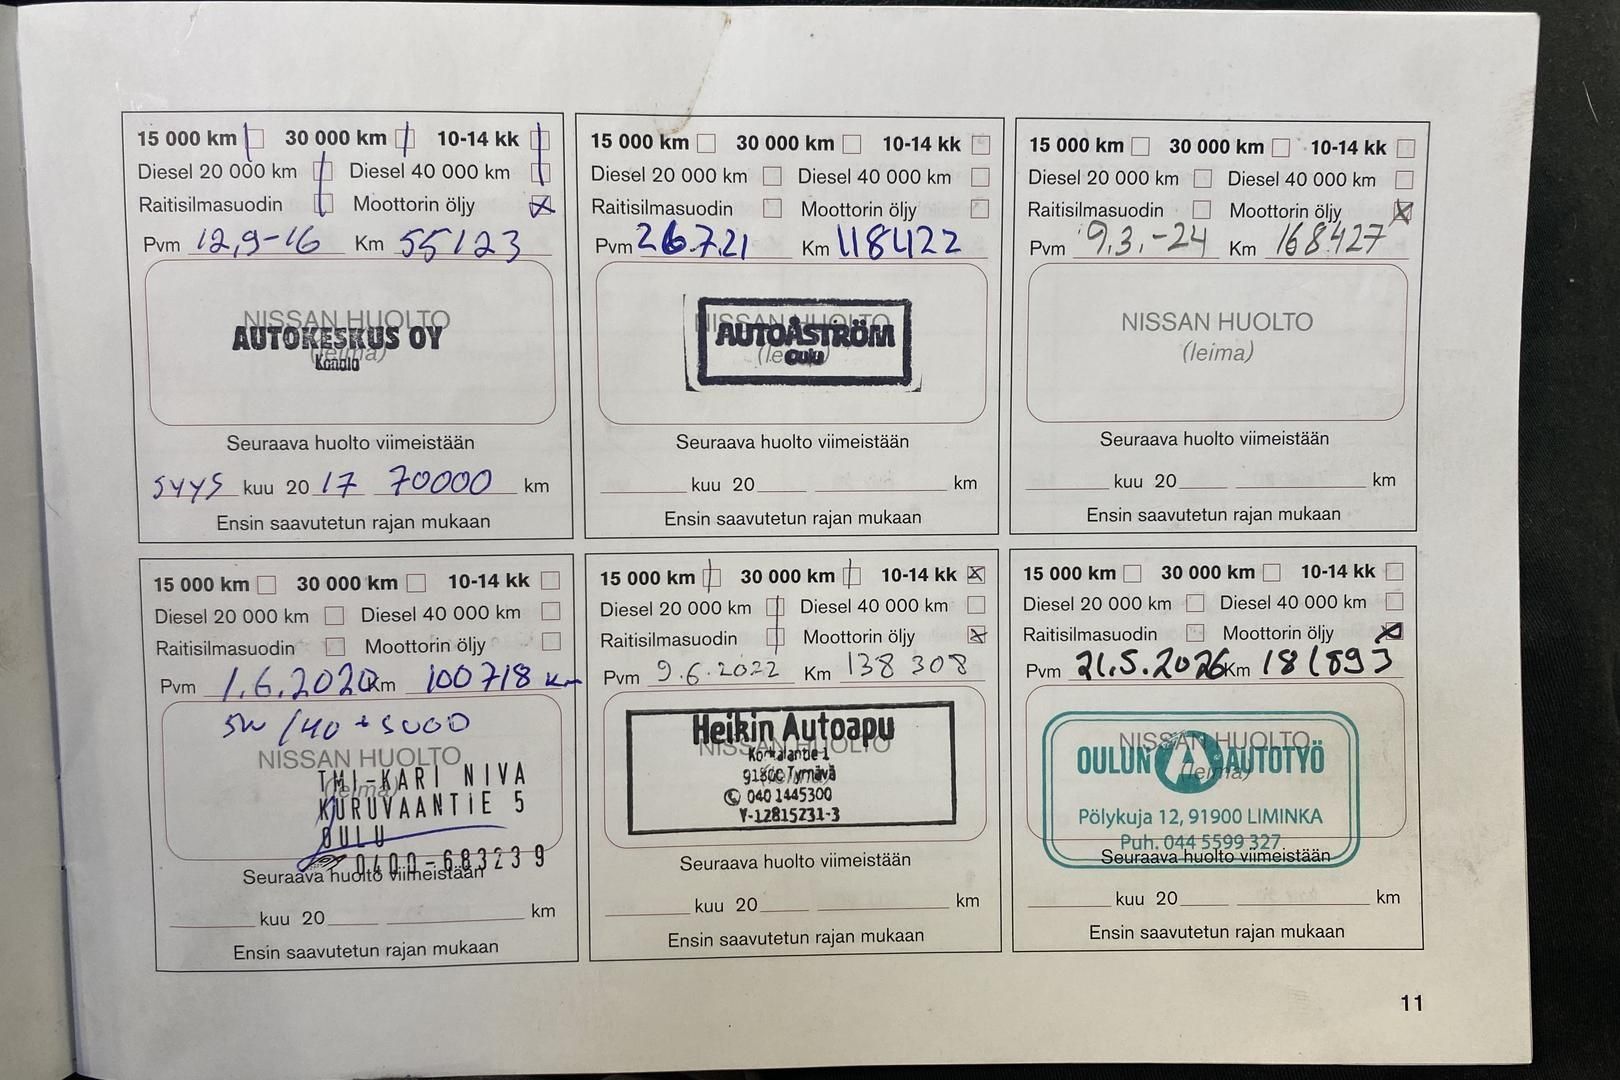 15 000 km 30 000 km 10-14 kk
Diesel 20 000 km Diesel 40 000 km
Raitisilmasuodin Moottorin öljy
Pvm 12,9-16 Km 55123
NISSAN HUOLTO
AUTOKESKUS OY
(leima)
Konala
Seuraava huolto viimeistään
SYYS kuu 20 17 70000 km
Ensin saavutetun rajan mukaan
15 000 km 30 000 km 10-14 kk
Diesel 20 000 km Diesel 40 000 km
Raitisilmasuodin Moottorin öljy
Pvm 26.7.21 Km 118422
NISSAN HUOLTO
AUTOÅSTRÖM
(leima)
Oulu
Seuraava huolto viimeistään
kuu 20 km
Ensin saavutetun rajan mukaan
15 000 km 30 000 km 10-14 kk
Diesel 20 000 km Diesel 40 000 km
Raitisilmasuodin Moottorin öljy
Pvm 9.3.-24 Km 168427
NISSAN HUOLTO
(leima)
Seuraava huolto viimeistään
kuu 20 km
Ensin saavutetun rajan mukaan
15 000 km 30 000 km 10-14 kk
Diesel 20 000 km Diesel 40 000 km
Raitisilmasuodin Moottorin öljy
Pvm 1.6.2020 Km 100718 km
5W/40 + SUOD
NISSAN HUOLTO
TMI-KARI NIVA
(leima)
KURUVAANTIE 5
OULU
0400-683239
Seuraava huolto viimeistään
kuu 20 km
Ensin saavutetun rajan mukaan
15 000 km 30 000 km 10-14 kk
Diesel 20 000 km Diesel 40 000 km
Raitisilmasuodin Moottorin öljy
Pvm 9.6.2022 Km 138 308
Heikin Autoapu
NISSAN HUOLTO
Korkalantie 1
91800 Tyrnävä
040 1445300
Y-12815231-3
Seuraava huolto viimeistään
kuu 20 km
Ensin saavutetun rajan mukaan
15 000 km 30 000 km 10-14 kk
Diesel 20 000 km Diesel 40 000 km
Raitisilmasuodin Moottorin öljy
Pvm 21.5.2026 Km 181893
NISSAN HUOLTO
OULUN A AUTOTYÖ
(leima)
Pölykuja 12, 91900 LIMINKA
Puh. 044 5599 327
Seuraava huolto viimeistään
kuu 20 km
Ensin saavutetun rajan mukaan
11